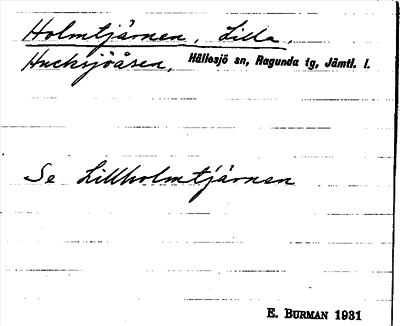 Holmtjärnen, Lilla.
Hucksjöåsen, Hällesjö sn, Ragunda tg, Jämtl. l.
Se Lillholmtjärnen
E. BURMAN 1931